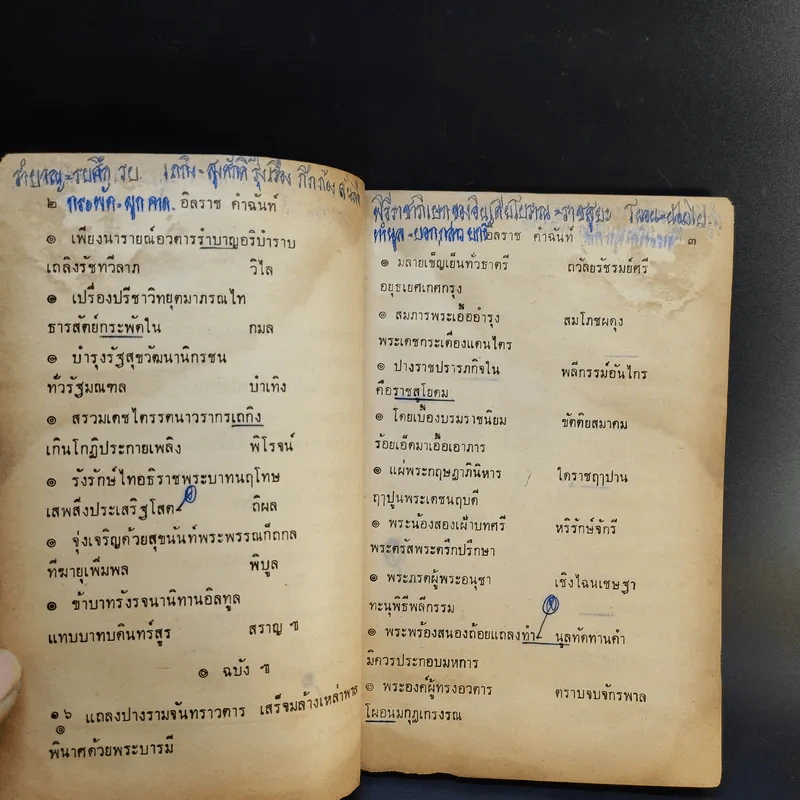 รำบาญ=รบศึก รบ. เถกิง=สูงศักดิ์ รุ่งเรือง กึกก้อง
๒ กระพัด=ผูก คาด. อิลราช คำฉันท์
๏ เพียงนารายณ์อวตารรำบาญอริบำราบ
เถลิงรัชทวีลาภ วิไล
๏ เปรื่องปรีชาวิทยุตมาภรณไท
ธารสัตย์กระพัดใน กมล
๏ บำรุงรัฐสุขวัฒนานิกรชน
ทั่วรัฐมณฑล บำเทิง
๏ สรวมเดชไตรรตนาวรากรเถกิง
เกินโกฏิประกายเพลิง พิโรจน์
๏ รังรักษ์ไทอธิราชพระบาทนฤโทษ
เสพสิ่งประเสริฐโสต ถิผล
๏ จุ่งเจริญด้วยสุขนันท์พระพรรณก็ถกล
ทีฆายุเพิ่มพล พิบูล
๏ ข้าบาทรังรจนานิทานอิลทูล
แทบบาทบดินทร์สูร สราญ ฯ
๏ ฉบัง ฯ
๑๖ แถลงปางรามจันทราวตาร เสร็จมล้างเหล่าพาล
๏
พินาศด้วยพระบารมี
พิธีราชาภิเษกของอินเดียโบราณ=ราชสูยะ
ทำนูล=บอกกล่าว อิลราช คำฉันท์ ๓
๏ มลายเข็ญเย็นทั่วธาตรี ถวัลยรัชรมย์ศรี
อยุธเยศเกศกรุง
๏ สมภารพระเอื้ออำรุง สมโภชผดุง
พระเดชกระเดื่องแดนไตร
๏ ปางราชปรารภกิจใน พลีกรรม์อันไกร
คือราชสูโยดม
๏ โดยเบื้องบรมราชนิยม ขัตติยสมาคม
ร้อยเอ็ดมาเอื้อเอาภาร
๏ แผ่พระกฤษฎาภินิหาร ใดราชฤาปาน
ฤาปูนพระเดชนฤบดี
๏ พระน้องสองเฝ้าบทศรี หริรักษ์จักรี
พระตรัสพระตรึกปรึกษา
๏ พระภรตผู้พระอนุชา เชิงไฉนเชษฐา
ทะนุพิธีพลีกรรม
๏ พระพร้องสนองถ้อยแถลงทำ นูลทัดทานคำ
มิควรประกอบมหการ
๏ พระองค์ผู้ทรงอวตาร ตราบจบจักรพาล
โผอนมกุฎเกรงรณ